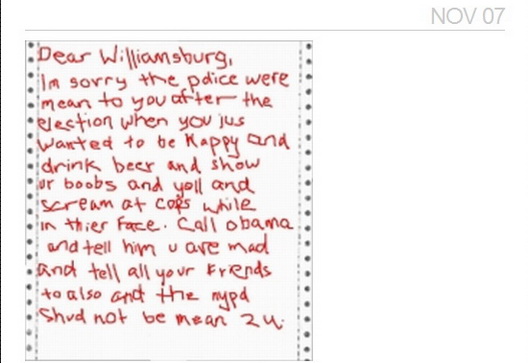 NOV 07
Dear Williamsburg,
Im sorry the police were
mean to you after the
election when you jus
wanted to be Happy and
drink beer and show
ur boobs and yell and
scream at cops while
in thier face. Call obama
and tell him u are mad
and tell all your Friends
to also and the nypd
Shud not be mean 2 u.